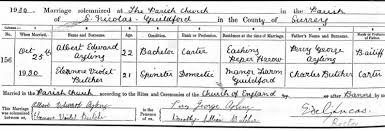 1930 Marriage solemnized at The Parish Church in the Parish
of S. Nicolas - Guildford in the County of Surrey
When Married. Name and Surname. Age. Condition. Rank or Profession. Residence at the time of Marriage. Father's Name and Surname.
156 Oct 25th 1930
Albert Edward Ayling 22 Bachelor Carter Eashing Peper Harow Percy George Ayling Bailiff
Eleanor Violet Butcher 21 Spinster Domestic Manor Farm Guildford Charles Butcher Carter
Married in the Parish Church according to the Rites and Ceremonies of the Church of England after Banns by
This Marriage was solemnized between us, Albert Edward Ayling Violet Butcher in the Presence of us, Percy George Ayling Dorothy Butcher
Rector